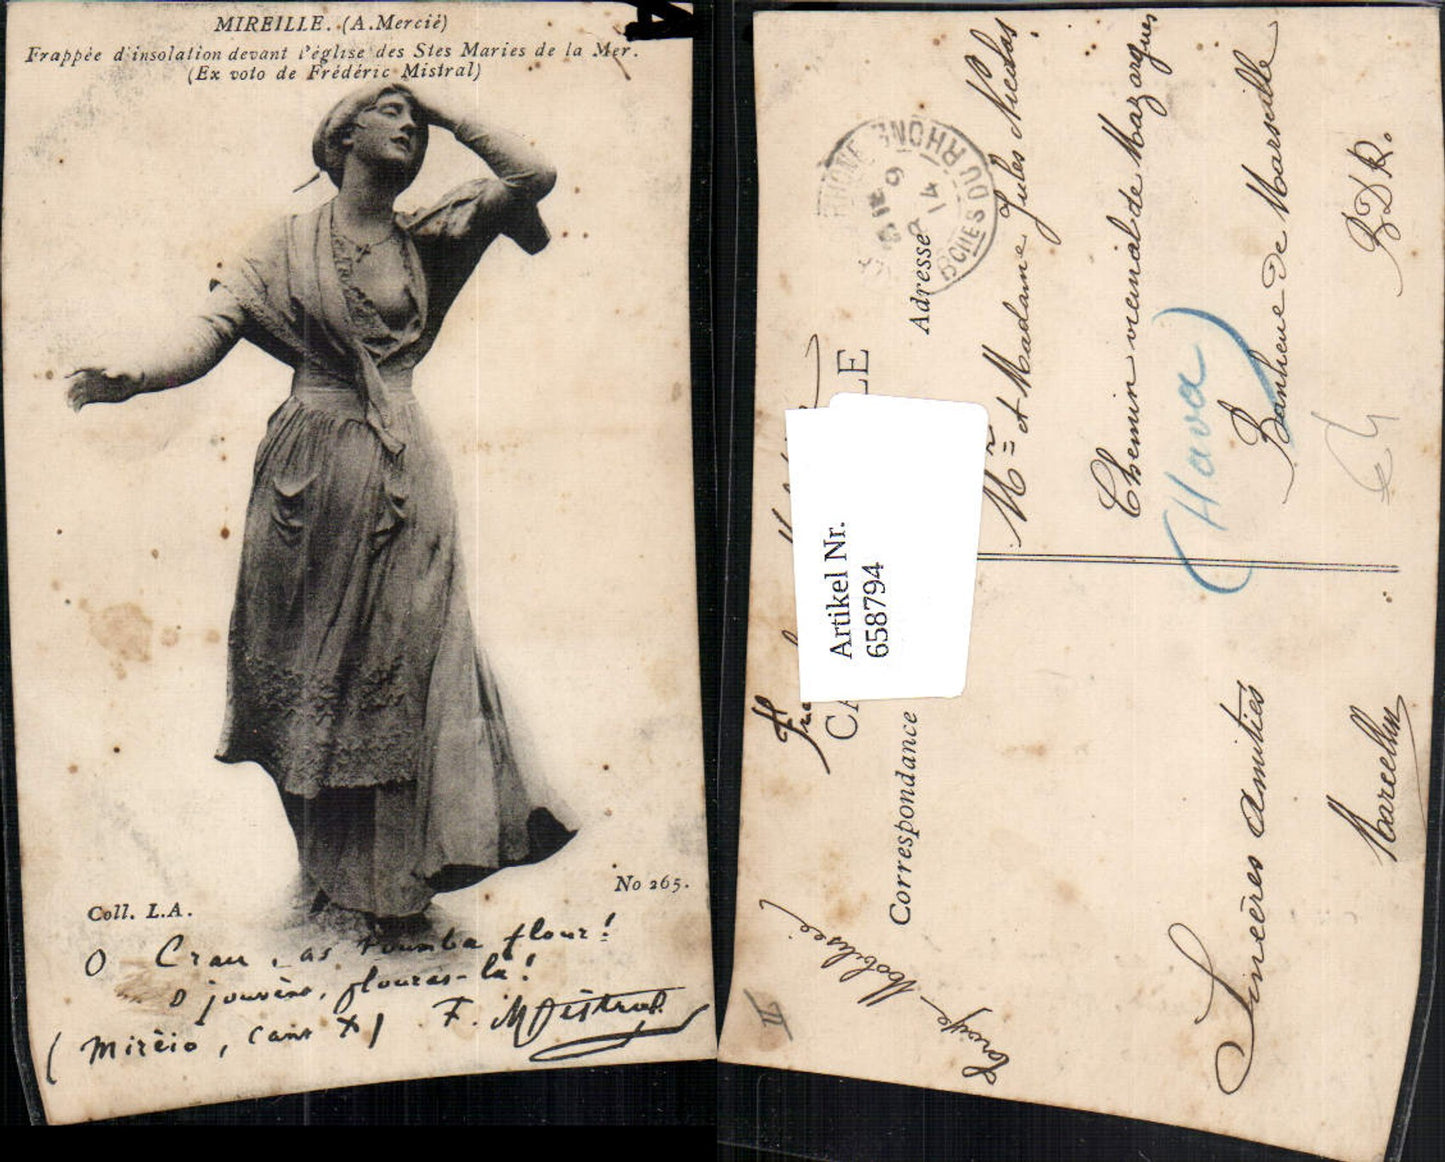 MIREILLE. (A. Mercié)
Frappée d'insolation devant l'église des Stes Maries de la Mer.
(Ex voto de Frédéric Mistral)
No 265.
Coll. L.A.
O Crau, as toumba flour!
O jouvènt, flouras-la!
(Mirèio, cant X) F. Mistral
BCHES DU RHONE
9
14
CA
LE
Correspondance
Adresse
Mr et Madame Jules Nicolas
Chemin vicinal de Mazargues
Banlieue de Marseille
B D R.
(Hava)
Artikel Nr.
658794
Mobilisée
Sincères Amitiés
Marcellin